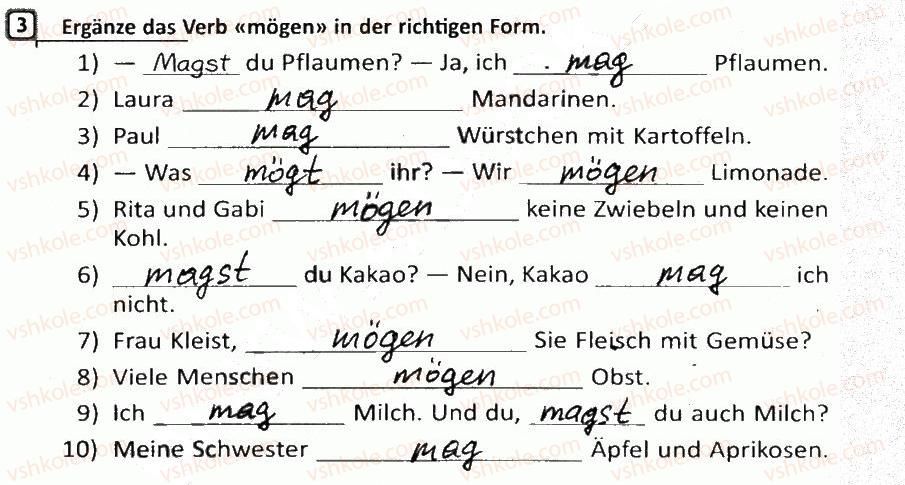 3 Ergänze das Verb «mögen» in der richtigen Form.
1) — Magst du Pflaumen? — Ja, ich mag Pflaumen.
2) Laura mag Mandarinen.
3) Paul mag Würstchen mit Kartoffeln.
4) — Was mögt ihr? — Wir mögen Limonade.
5) Rita und Gabi mögen keine Zwiebeln und keinen
Kohl.
6) magst du Kakao? — Nein, Kakao mag ich
nicht.
7) Frau Kleist, mögen Sie Fleisch mit Gemüse?
8) Viele Menschen mögen Obst.
9) Ich mag Milch. Und du, magst du auch Milch?
10) Meine Schwester mag Äpfel und Aprikosen.
vshkole.com